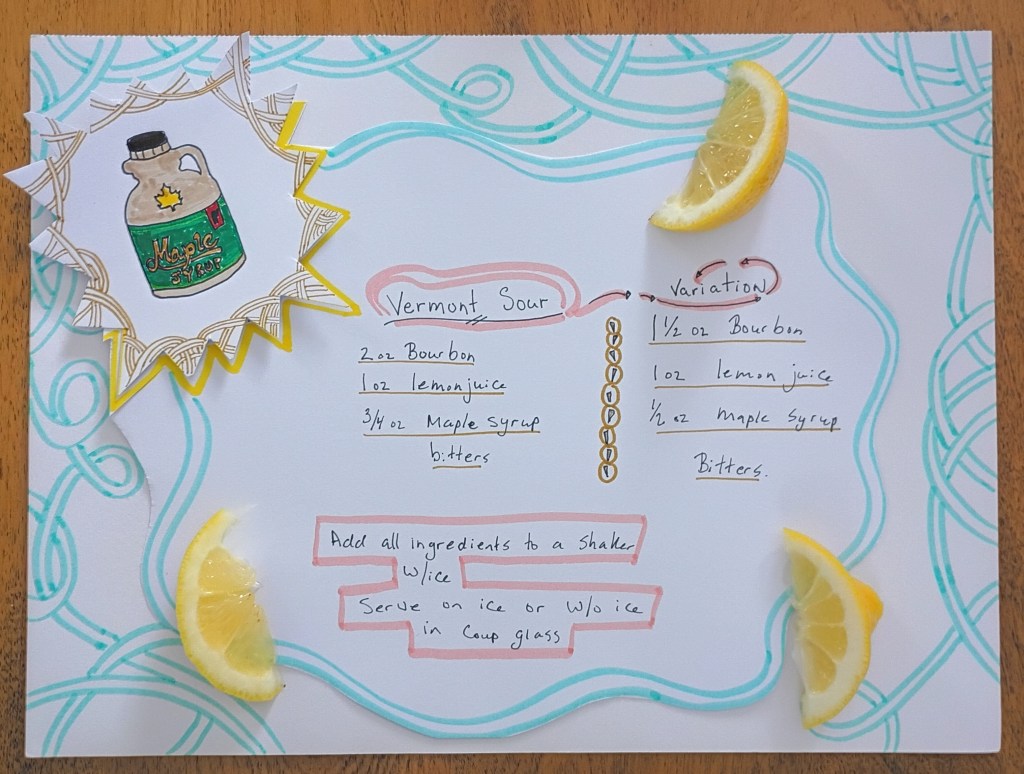 Maple
SYRUP
Vermont Sour
2 oz Bourbon
1 oz lemon juice
3/4 oz Maple syrup
bitters
Variation
1 1/2 oz Bourbon
1 oz lemon juice
1/2 oz maple syrup
Bitters.
Add all ingredients to a shaker
w/ice
Serve on ice or w/o ice
in Coup glass